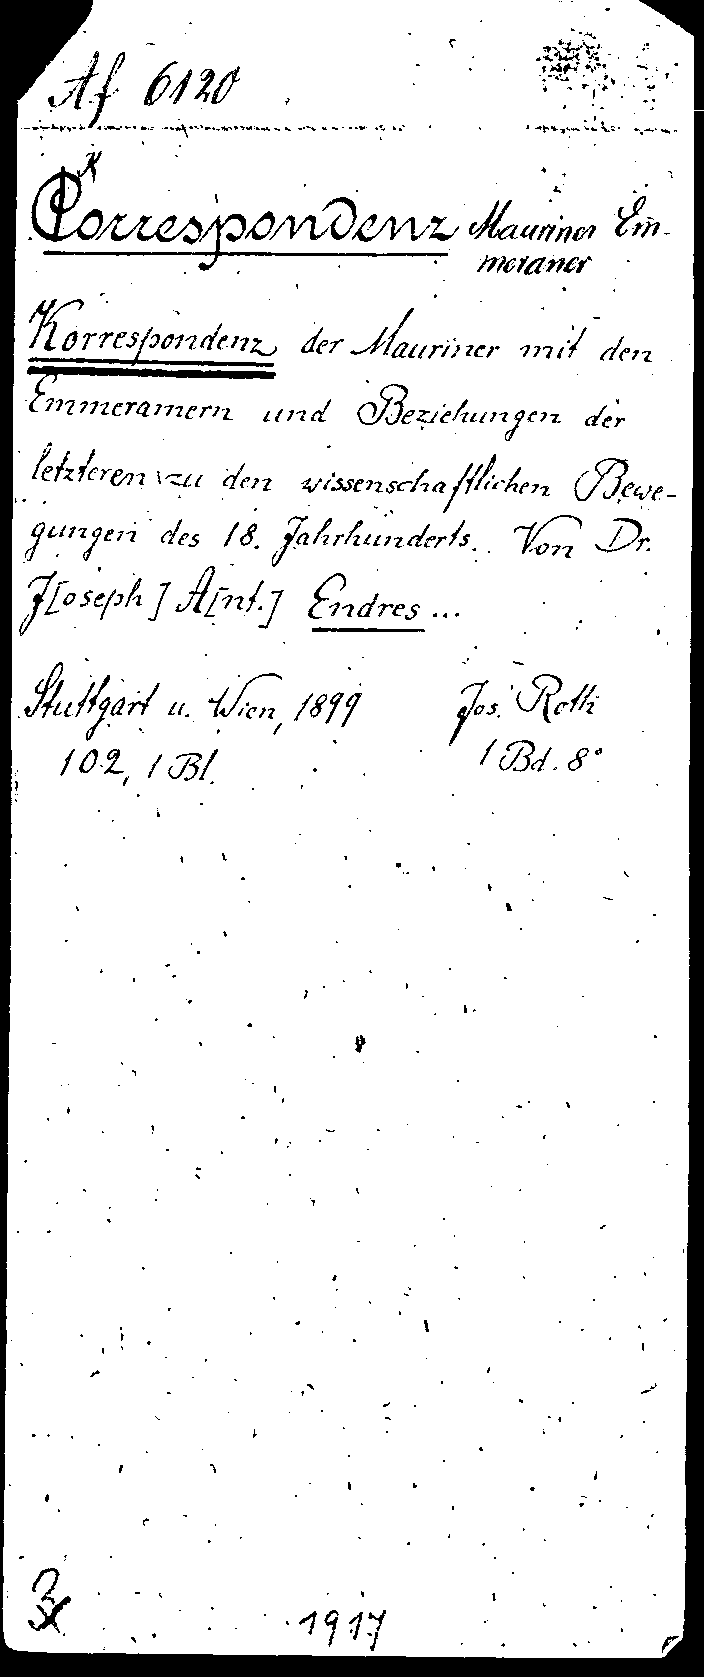 Af 6120
K
Correspondenz Mauriner Em-
meramer
Korrespondenz der Mauriner mit den
Emmeramern und Beziehungen der
letzteren zu den wissenschaftlichen Bewe-
gungen des 18. Jahrhunderts. Von Dr.
J[oseph] A[nt.] Endres ...
Stuttgart u. Wien, 1899 Jos. Roth
102, 1 Bl. 1 Bd. 8°
1917